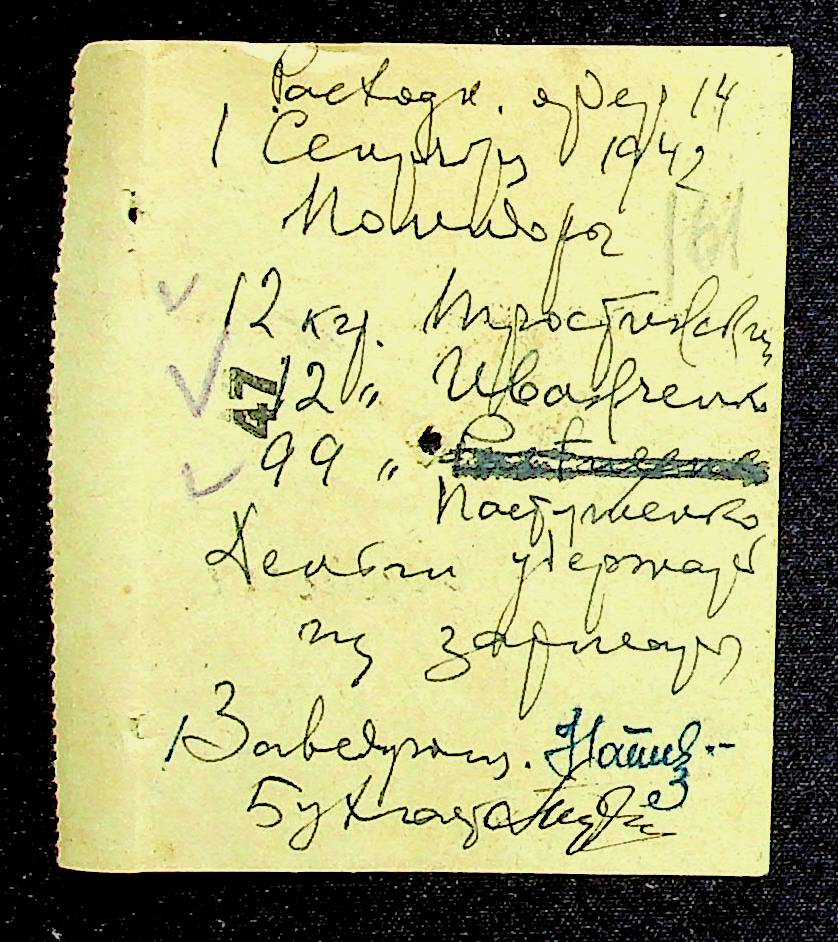 Расходн. ордер 14
1 Сентября 1942
Помидоры
12 кг. Тростинский
47
12 „ Иванченко
99 „
Пастушенко
Деньги удержать
из зарплаты
Заведующ.
Бухгалтер